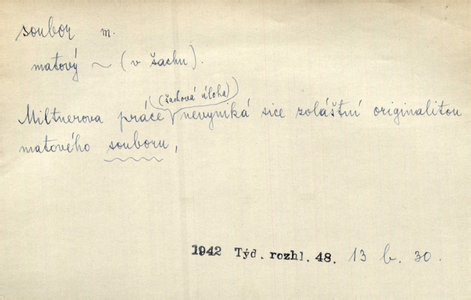 soubor m.
matový ~ (v šachu).
(šachová úloha)
Miltnerova práce nevyniká sice zvláštní originalitou
matového souboru,
1942 Týd. rozhl. 48. 13 b. 30.